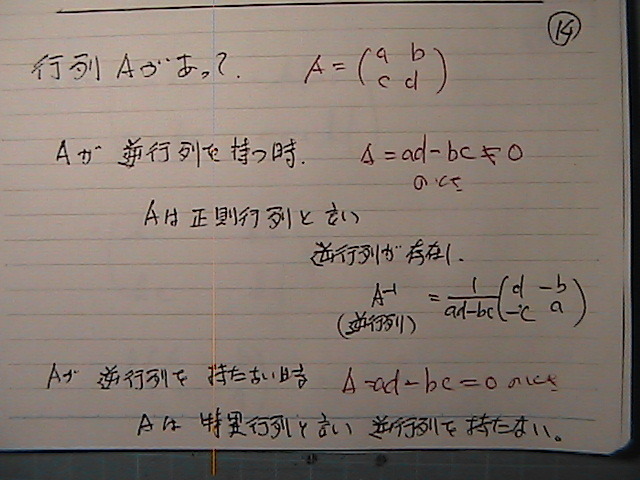 ⑭
行列 Aがあって. A = (a b c d)
Aが 逆行列を持つ時. Δ = ad - bc ≠ 0
のとき
Aは 正則行列と言い
逆行列が存在し.
A⁻¹ = 1/(ad-bc) (d -b -c a)
(逆行列)
Aが 逆行列を 持たない時 Δ=ad - bc = 0 のとき
Aは 特異行列と言い 逆行列を持たない。